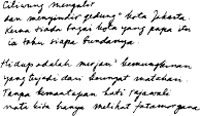 Ciliwung mengalir
dan menyindir gedung² kota Jakarta.
Kerna tiada bagai kota yang papa itu
ia tahu siapa bundanya.
Hidup adalah merjan² kemungkinan
yang terjadi dari keringat matahari.
Tanpa kemantapan hati rajawali
mata kita hanya melihat fatamorgana.